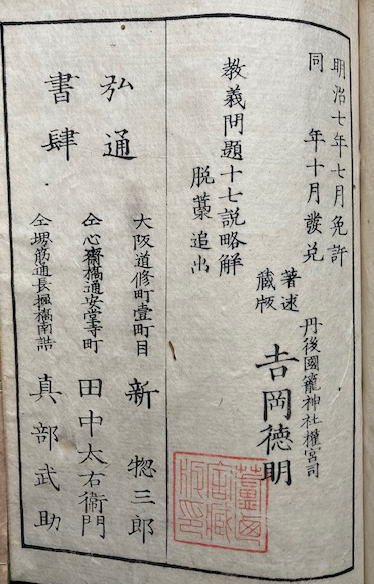 明治七年七月免許
同 年十月發兌
丹後國籠神社權宮司
著述
藏版
吉岡徳明
教義問題十七説略解
脱藁追出
弘通
書肆
大阪道修町壹町目 新 惣三郎
仝心齋橋通安堂寺町 田中太右衛門
仝堺筋通長堀橋南詰 真部武助